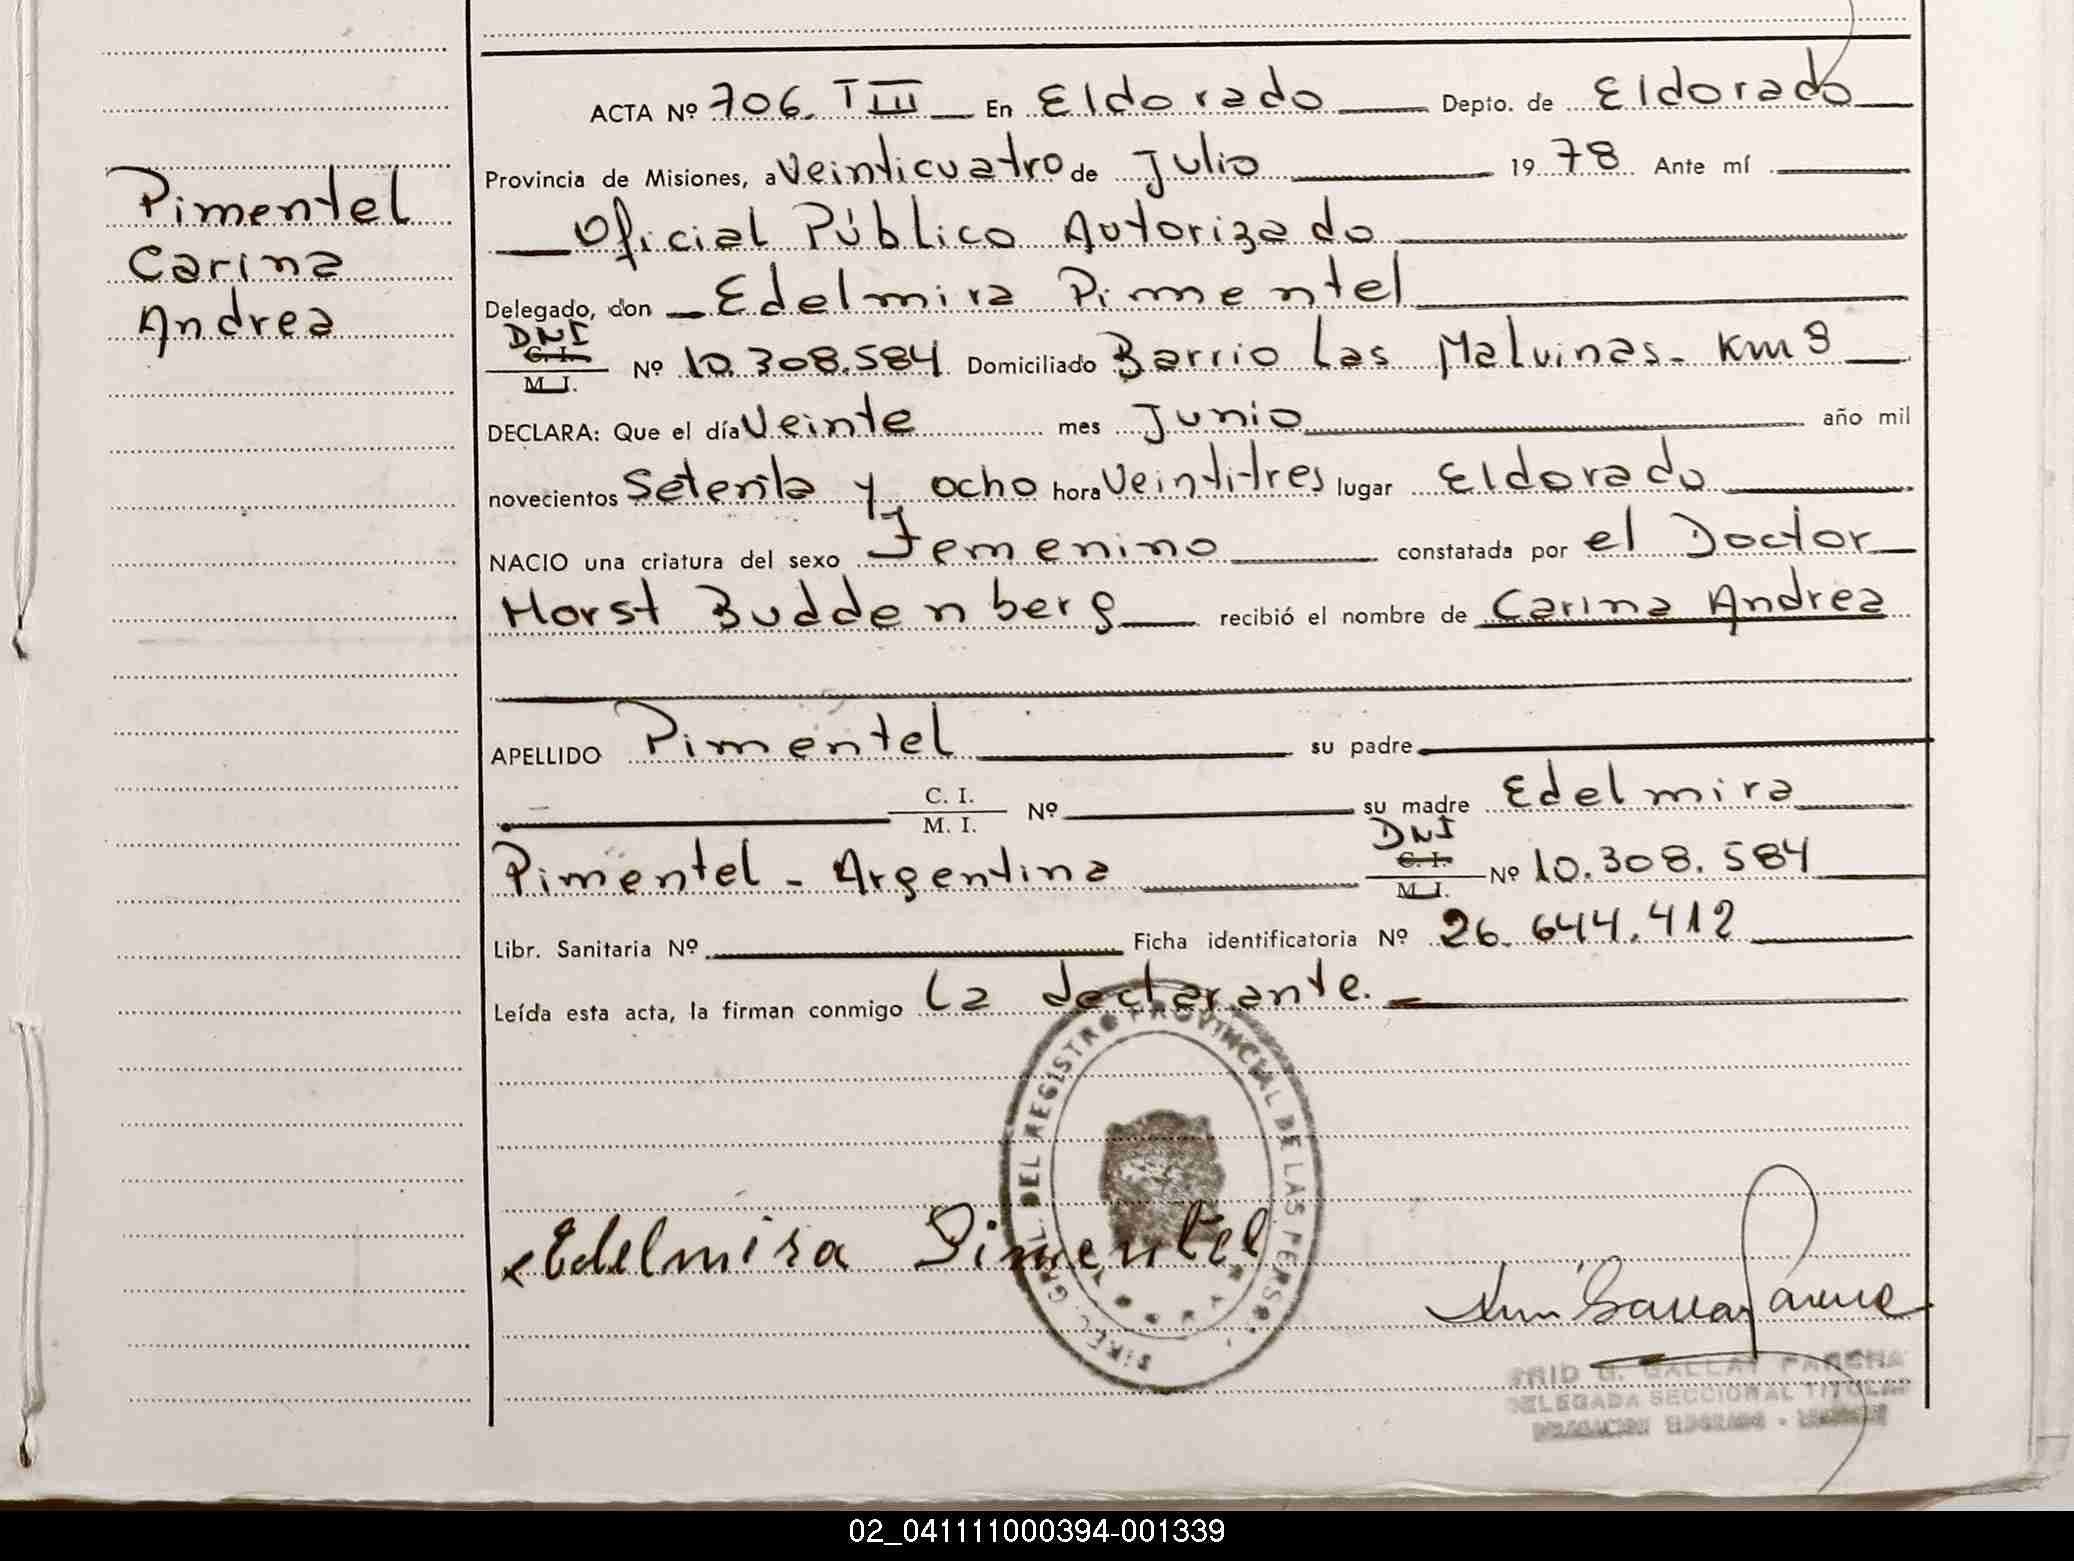 ACTA Nº 706. T III En Eldorado Depto. de Eldorado
Provincia de Misiones, a Veinticuatro de Julio 1978 Ante mí
Oficial Público Autorizado
Delegado, don Edelmira Pimentel
Pimentel
Carina
Andrea
DNI
C. I.
M. I.
Nº 10.308.584 Domiciliado Barrio Las Malvinas - Km 9
DECLARA: Que el día Veinte mes Junio año mil
novecientos Setenta y ocho hora Veintitres lugar Eldorado
NACIO una criatura del sexo Femenino constatada por el Doctor
Horst Buddenberg recibió el nombre de Carina Andrea
APELLIDO Pimentel su padre
C. I.
M. I.
Nº su madre Edelmira
DNI
C. I.
M. I.
Pimentel - Argentina Nº 10.308.584
Libr. Sanitaria Nº Ficha identificatoria Nº 26.644.412
Leída esta acta, la firman conmigo La declarante.
DIREC. GRAL. DEL REGISTRO PROVINCIAL DE LAS PERS.
Edelmira Pimentel
DELEGADA SECCIONAL TITULAR
02_041111000394-001339